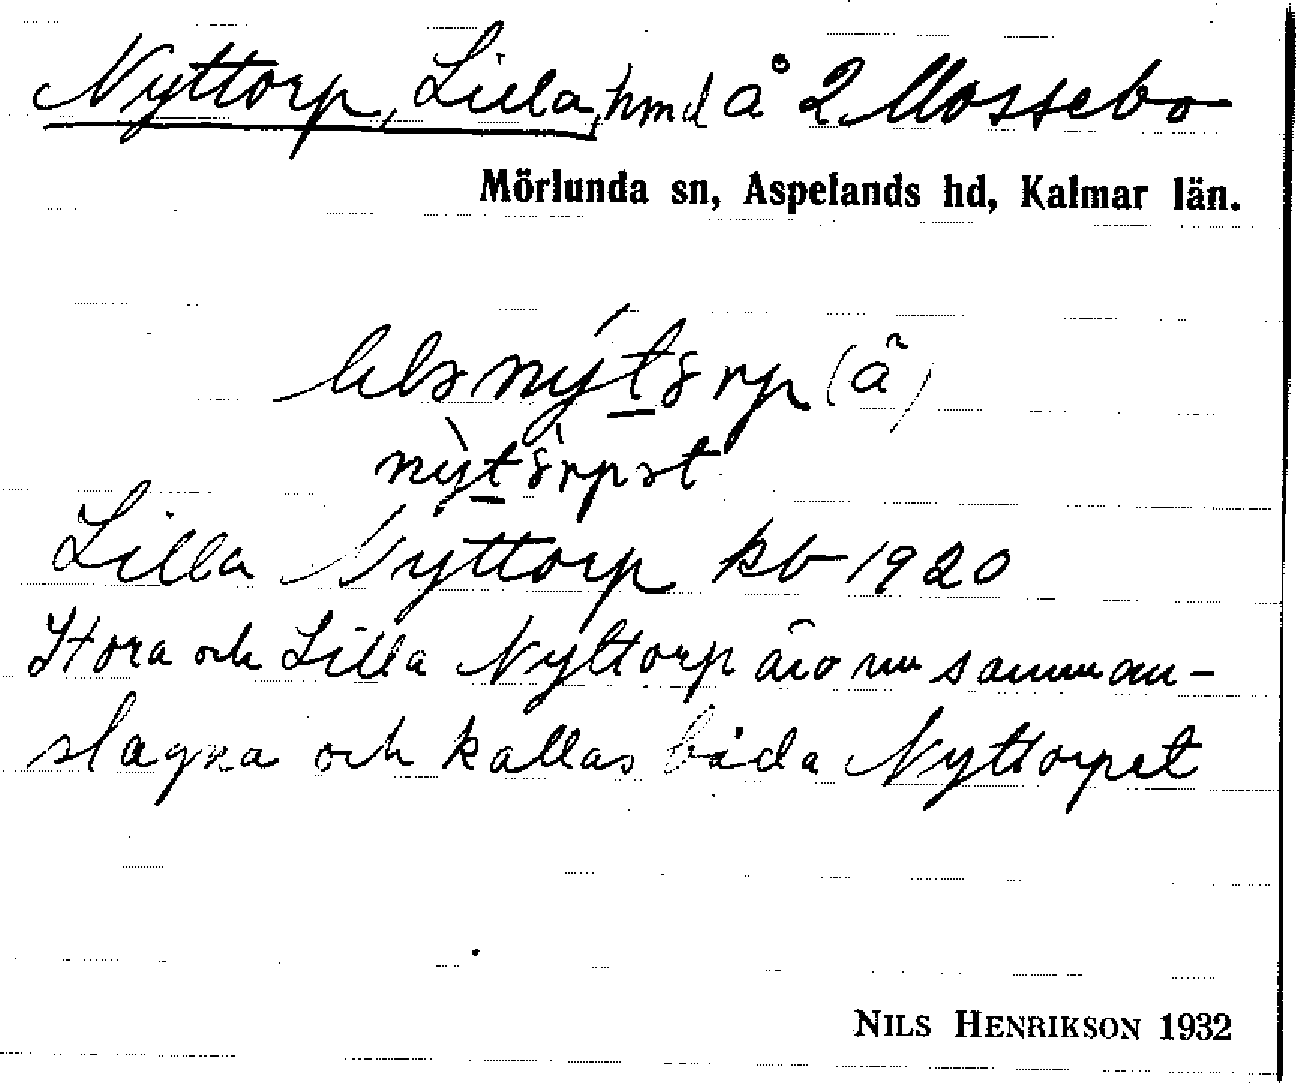 Nyttorp, Lilla, hmd å 2 Mossebo
Mörlunda sn, Aspelands hd, Kalmar län.
Lilla Nyttorp kb 1920
Stora och Lilla Nyttorp äro nu samman-
slagna och kallas båda Nyttorpet
NILS HENRIKSON 1932